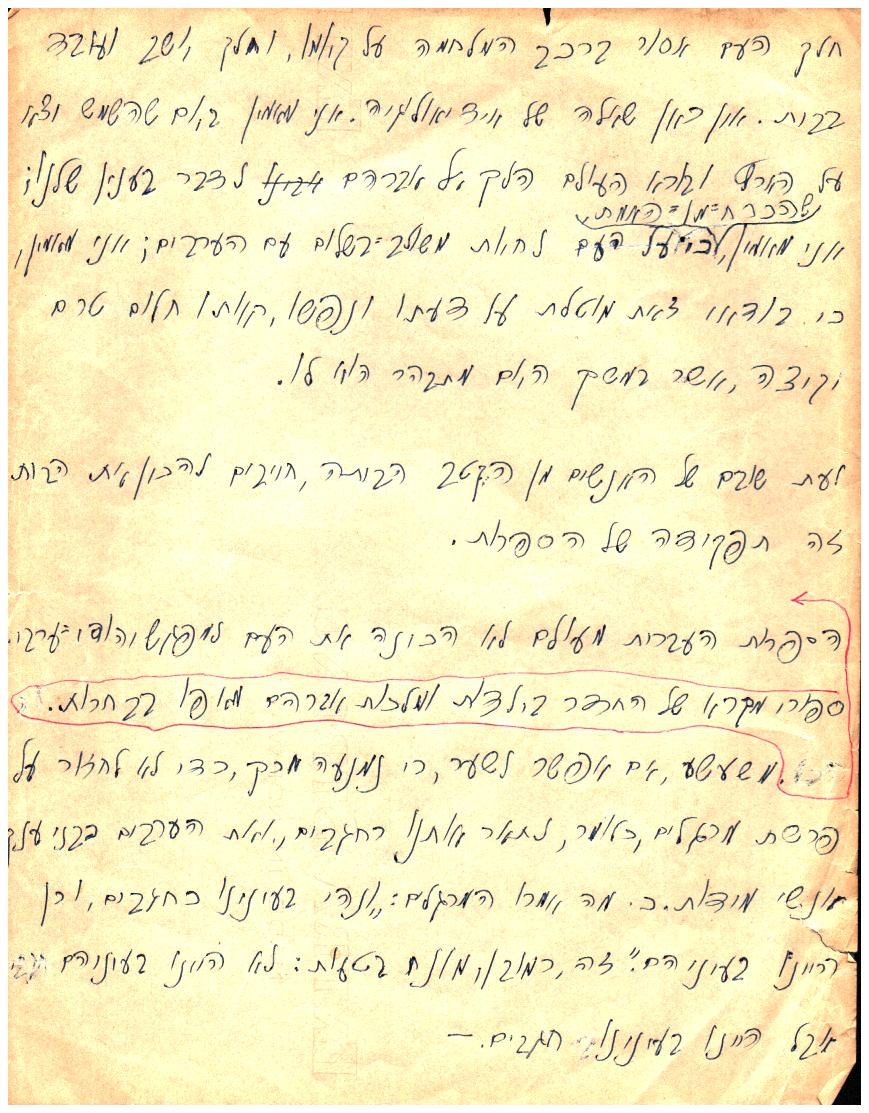 חלק העם אסור ברכב המלחמה על קיומו, וחלק יושב ועובד
בקיות. אין כאן שאלה של אידיאולוגיה. אני מאמין ביום שהשמש יצא
על הארץ ויבוא העולם הלך אל אברהם אבינו לדבר בענין שלנו;
שהכרח=מן=האמת
אני מאמין, כי על העם לחיות משולב=בשלום עם הערבים; אני מאמין,
כי בודאי זאת מוטלת על דעתו ונפשו, חלום טרם
יקיצה, אשר במשק היום מתבהר הוא לו.
לעת שובם של האנשים מן הקטב חויבים להכין את
זה תפקידה של הספרות.
הספרות העברית מעולם לא הכינה את העם למפגש יהודי=ערבי.
ספורי מקרא של החדר בילדות ומליצות אברהם מאפו בבחרות.
משעשע, אם אפשר לשער, כי נמנעה מכך, כדי לא לחזור על
פרשת מרגלים, כלומר, לתאר אותנו כחגבים, ואת הערבים כבני ענק
אנשי מידות. כי מה אמרו המרגלים: "ונהי בעינינו כחגבים, וכן
היינו בעיניהם". זה, כמובן, מונח בטעות: לא היינו בעיניהם
אבל היינו בעינינו חגבים. —